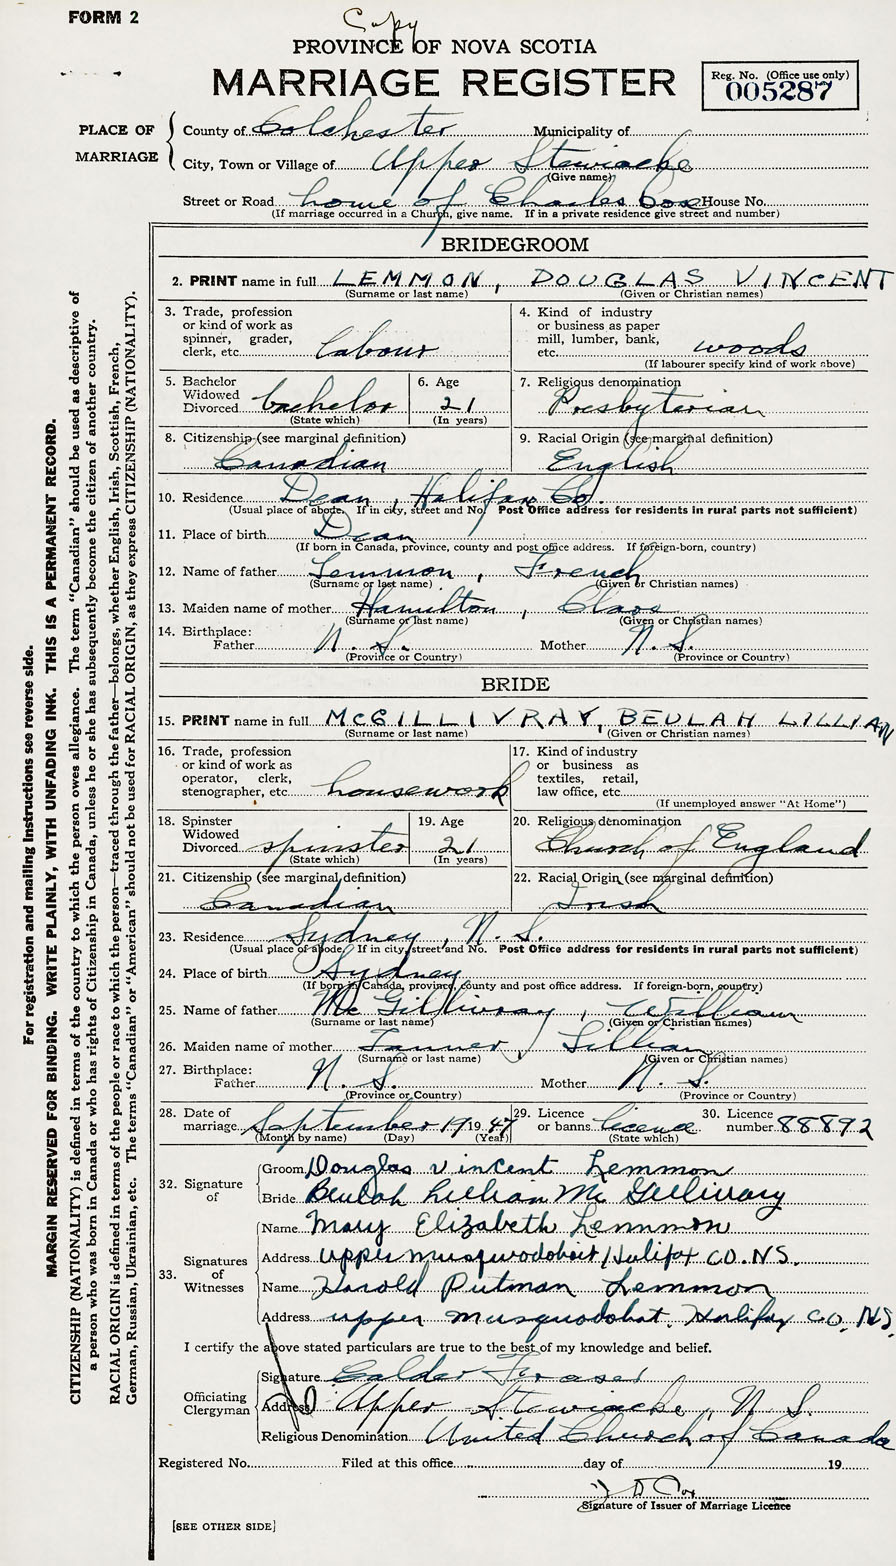 FORM 2
Copy
PROVINCE OF NOVA SCOTIA
MARRIAGE REGISTER
Reg. No. (Office use only)
005287
PLACE OF MARRIAGE
County of Colchester Municipality of
City, Town or Village of Upper Stewiacke
(Give name)
Street or Road home of Charles Cox House No.
(If marriage occurred in a Church, give name. If in a private residence give street and number)
BRIDEGROOM
2. PRINT name in full LEMMON, DOUGLAS VINCENT
(Surname or last name) (Given or Christian names)
3. Trade, profession
or kind of work as
spinner, grader,
clerk, etc. labour
4. Kind of industry
or business as paper
mill, lumber, bank,
etc. woods
(If labourer specify kind of work above)
5. Bachelor
Widowed
Divorced bachelor
(State which)
6. Age
21
(In years)
7. Religious denomination
Presbyterian
8. Citizenship (see marginal definition)
Canadian
9. Racial Origin (see marginal definition)
English
10. Residence Dean, Halifax Co.
(Usual place of abode. If in city, street and No. Post Office address for residents in rural parts not sufficient)
11. Place of birth Dean
(If born in Canada, province, county and post office address. If foreign-born, country)
12. Name of father Lemmon, French
(Surname or last name) (Given or Christian names)
13. Maiden name of mother Hamilton,
(Surname or last name) (Given or Christian names)
14. Birthplace:
Father N. S. Mother N. S.
(Province or Country) (Province or Country)
BRIDE
15. PRINT name in full McGILLIVRAY, BEULAH LILLIAN
(Surname or last name) (Given or Christian names)
16. Trade, profession
or kind of work as
operator, clerk,
stenographer, etc. housework
17. Kind of industry
or business as
textiles, retail,
law office, etc.
(If unemployed answer "At Home")
18. Spinster
Widowed
Divorced spinster
(State which)
19. Age
21
(In years)
20. Religious denomination
Church of England
21. Citizenship (see marginal definition)
Canadian
22. Racial Origin (see marginal definition)
Irish
23. Residence Sydney, N. S.
(Usual place of abode. If in city, street and No. Post Office address for residents in rural parts not sufficient)
24. Place of birth Sydney
(If born in Canada, province, county and post office address. If foreign-born, country)
25. Name of father McGillivray, William
(Surname or last name) (Given or Christian names)
26. Maiden name of mother Tanner, Lillian
(Surname or last name) (Given or Christian names)
27. Birthplace:
Father N. S. Mother N. S.
(Province or Country) (Province or Country)
28. Date of
marriage September 19 1947
(Month by name) (Day) (Year)
29. Licence
or banns licence
(State which)
30. Licence
number 88892
32. Signature of
Groom Douglas Vincent Lemmon
Bride Beulah Lillian McGillivary
33. Signatures of Witnesses
Name Mary Elizabeth Lemmon
Address Upper Musquodoboit, Halifax CO. NS.
Name Harold Putman Lemmon
Address upper musquodobat, Halifax CO. NS.
I certify the above stated particulars are true to the best of my knowledge and belief.
Officiating Clergyman
Signature Calder Fraser
Address Upper Stewiacke, N. S.
Religious Denomination United Church of Canada
Registered No. Filed at this office day of 19
Cox
Signature of Issuer of Marriage Licence
[SEE OTHER SIDE]
For registration and mailing instructions see reverse side.
MARGIN RESERVED FOR BINDING. WRITE PLAINLY, WITH UNFADING INK. THIS IS A PERMANENT RECORD.
CITIZENSHIP (NATIONALITY) is defined in terms of the country to which the person owes allegiance. The term "Canadian" should be used as descriptive of
a person who was born in Canada or who has rights of Citizenship in Canada, unless he or she has subsequently become the citizen of another country.
RACIAL ORIGIN is defined in terms of the people or race to which the person—traced through the father—belongs, whether English, Irish, Scottish, French,
German, Russian, Ukrainian, etc. The terms "Canadian" or "American" should not be used for RACIAL ORIGIN, as they express CITIZENSHIP (NATIONALITY).